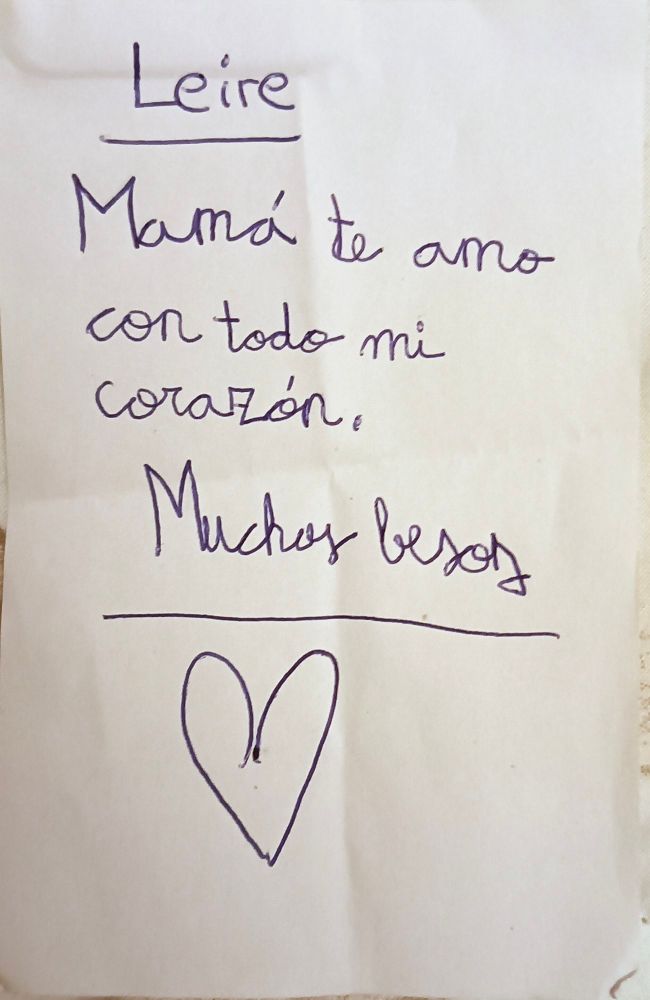 Leire
Mamá te amo
con todo mi
corazón.
Muchos besos